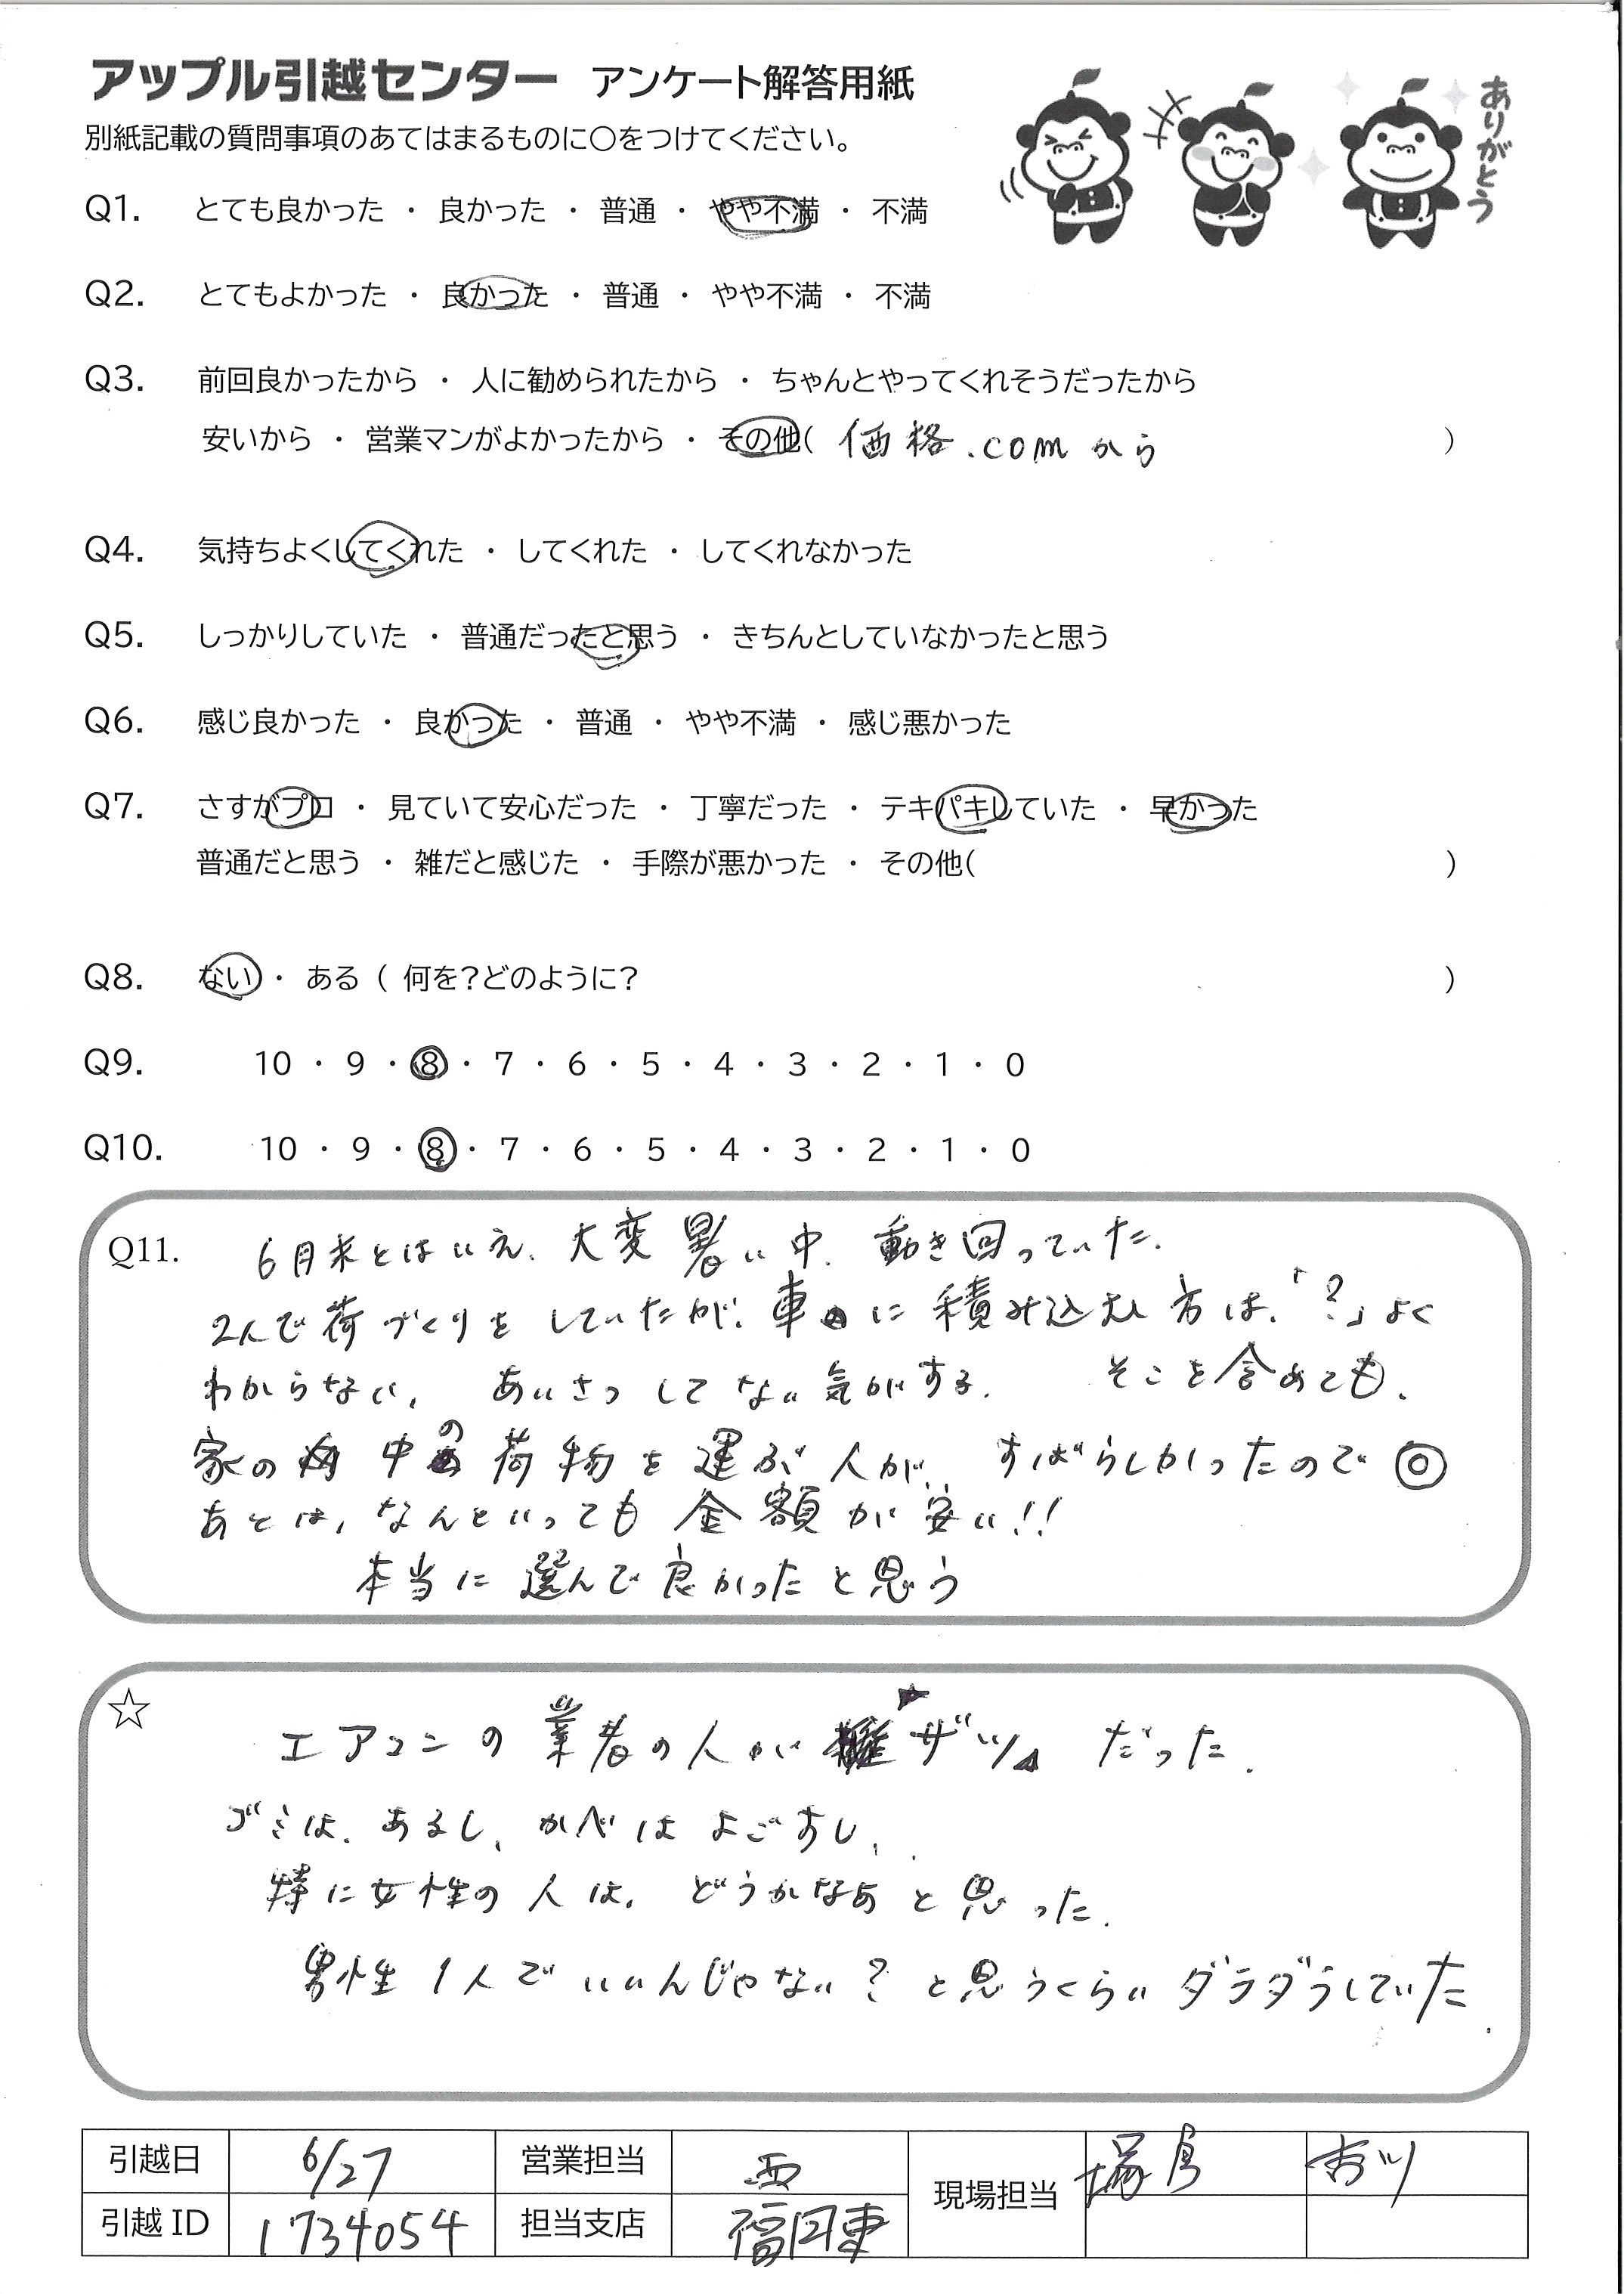 アップル引越センター アンケート解答用紙
ありがとう
別紙記載の質問事項のあてはまるものに○をつけてください。
Q1. とても良かった ・ 良かった ・ 普通 ・ やや不満 ・ 不満
Q2. とてもよかった ・ 良かった ・ 普通 ・ やや不満 ・ 不満
Q3. 前回良かったから ・ 人に勧められたから ・ ちゃんとやってくれそうだったから
安いから ・ 営業マンがよかったから ・ その他( 価格.comから )
Q4. 気持ちよくしてくれた ・ してくれた ・ してくれなかった
Q5. しっかりしていた ・ 普通だったと思う ・ きちんとしていなかったと思う
Q6. 感じ良かった ・ 良かった ・ 普通 ・ やや不満 ・ 感じ悪かった
Q7. さすがプロ ・ 見ていて安心だった ・ 丁寧だった ・ テキパキしていた ・ 早かった
普通だと思う ・ 雑だと感じた ・ 手際が悪かった ・ その他( )
Q8. ない ・ ある ( 何を?どのように? )
Q9. 10 ・ 9 ・ 8 ・ 7 ・ 6 ・ 5 ・ 4 ・ 3 ・ 2 ・ 1 ・ 0
Q10. 10 ・ 9 ・ 8 ・ 7 ・ 6 ・ 5 ・ 4 ・ 3 ・ 2 ・ 1 ・ 0
Q11. 6月末とはいえ、大変暑い中、動き回っていた。
2人で荷づくりをしていたが、車に積み込む方は、「?」よく
わからない、あいさつしてない気がする。 そこを含めても、
家の中の荷物を運ぶ人が、すばらしかったので ◎
あとは、なんといっても金額が安い!!
本当に選んで良かったと思う
☆ エアコンの業者の人がザツだった。
ゴミは、あるし、かべはよごすし、
特に女性の人は、どうかなあと思った。
男性1人でいいんじゃない?と思うくらいダラダラしていた。
引越日 6/27 営業担当 西 現場担当
引越ID 1734054 担当支店 福岡東